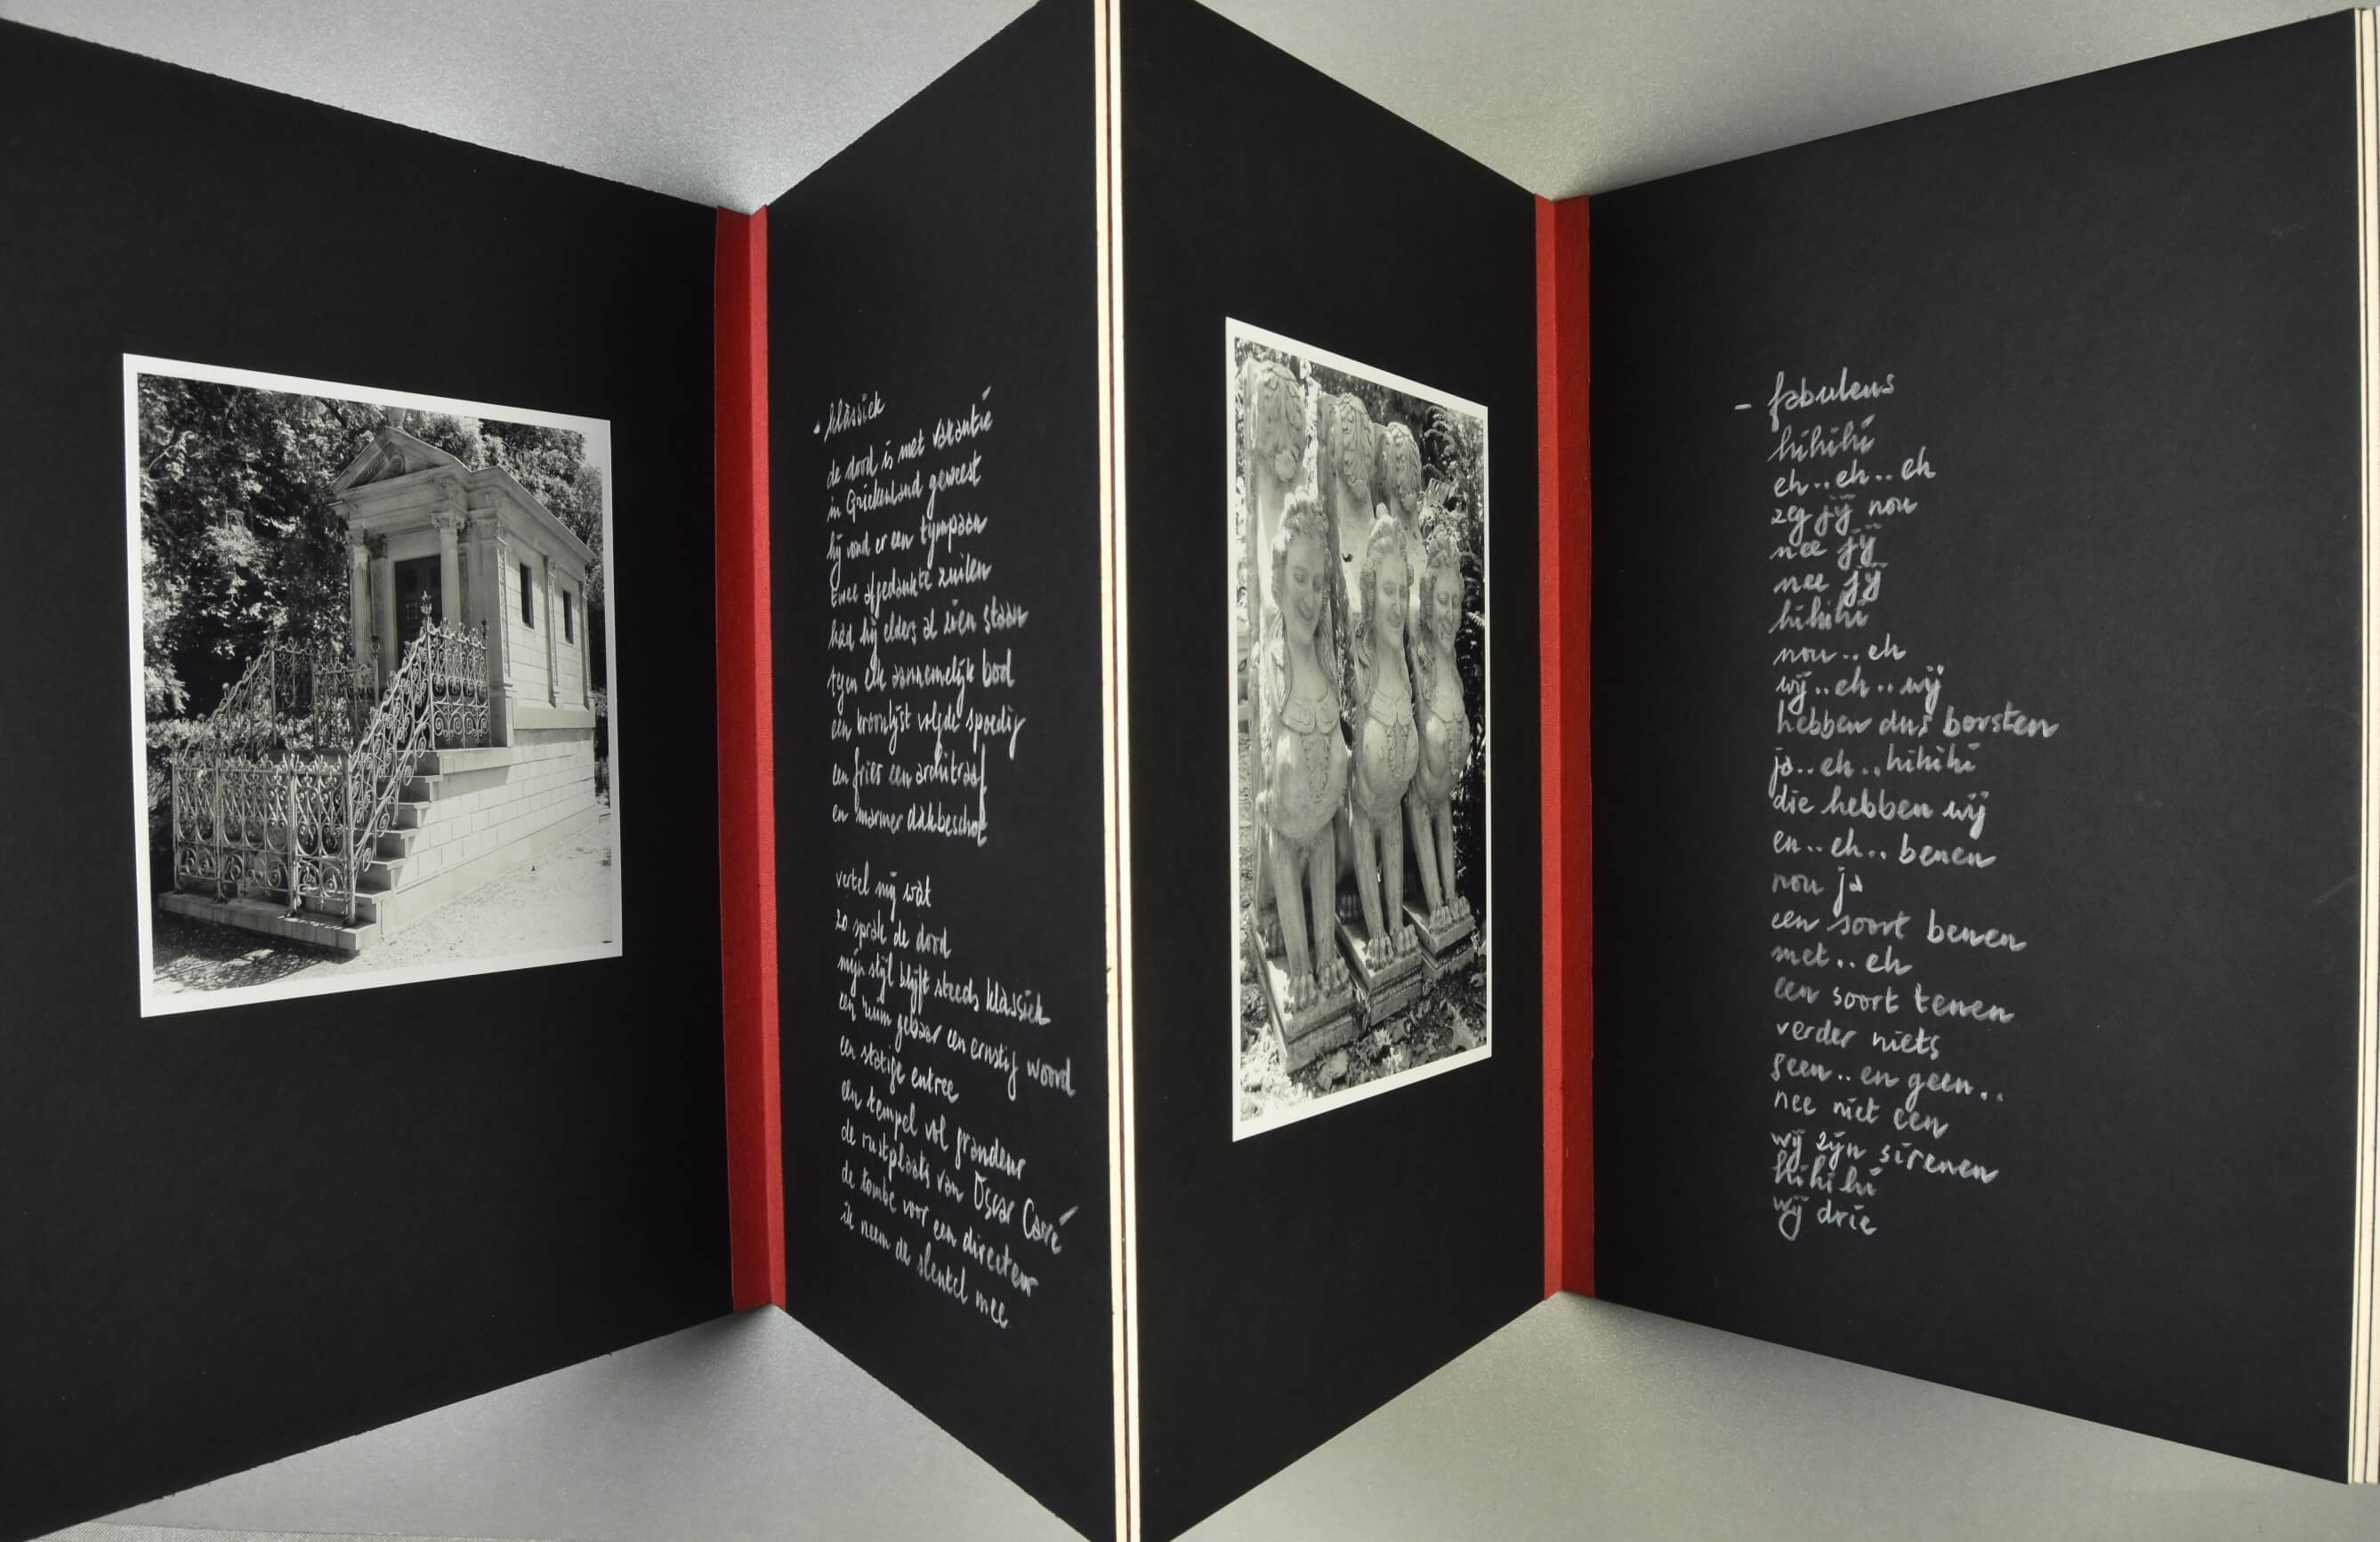 - klassiek
de dood is met vakantie
in Griekenland geweest
hij vond er een tympaan
twee afgedankte zuilen
had hij elders al zien staan
tegen elk aannemelijk bod
een kroonlijst volgde spoedig
een fries een architraaf
en marmer dakbeschot
vertel mij wat
zo sprak de dood
mijn stijl blijft steeds klassiek
een ruim gebaar een ernstig woord
een statige entree
een tempel vol grandeur
de rustplaats van Oscar Carré
de tombe voor een directeur
ik neem de sleutel mee
- fabuleus
hihihi
eh..eh..eh
zeg jij nou
nee jij
nee jij
hihihi
nou..eh
wij..eh..wij
hebben dus borsten
ja..eh..hihihi
die hebben wij
en..eh..benen
nou ja
een soort benen
met..eh
een soort tenen
verder niets
geen..en geen..
nee niet een
wij zijn sirenen
hihihi
wij drie